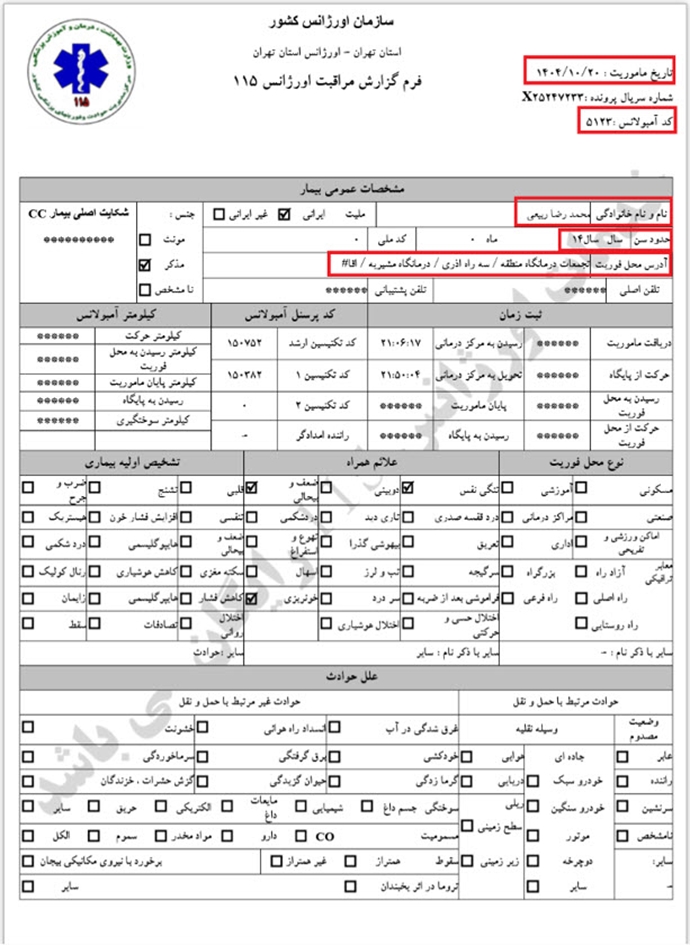 سازمان اورژانس کشور
استان تهران - اورژانس استان تهران
فرم گزارش مراقبت اورژانس ۱۱۵
تاریخ ماموریت : ۱۴۰۴/۱۰/۲۰
شماره سریال پرونده :X۲۵۲۴۷۲۳۳
کد آمبولانس :۵۱۲۳
۱۱۵
مشخصات عمومی بیمار
نام و نام خانوادگی محمد رضا ربیعی ملیت ایرانی غیر ایرانی جنس : شکایت اصلی بیمار CC
حدود سن سال سال۱۴ ماه ۰ کد ملی ۰ مونث **********
آدرس محل فوریت تجمعات درمانگاه منطقه / سه راه اذری / درمانگاه مشیریه / اقا# مذکر
تلفن اصلی ****** تلفن پشتیبانی ****** نا مشخص
ثبت زمان کد پرسنل آمبولانس کیلومتر آمبولانس
دریافت ماموریت ****** رسیدن به مرکز درمانی ۲۱:۰۶:۱۷ کد تکنیسین ارشد ۱۵۰۷۵۲ کیلومتر حرکت ******
کیلومتر رسیدن به محل فوریت ******
حرکت از پایگاه ****** تحویل به مرکز درمانی ۲۱:۵۰:۰۴ کد تکنیسین ۱ ۱۵۰۳۸۲ کیلومتر پایان ماموریت ******
رسیدن به محل فوریت ****** پایان ماموریت ****** کد تکنیسین ۲ ۰ رسیدن به پایگاه ******
کیلومتر سوختگیری ******
حرکت از محل فوریت ****** رسیدن به پایگاه ****** راننده امدادگر -
نوع محل فوریت علائم همراه تشخیص اولیه بیماری
مسکونی آموزشی تنگی نفس دوبینی ضعف و بیحالی قلبی تشنج ضرب و جرح
صنعتی مراکز درمانی درد قفسه صدری تاری دید دردشکمی تنفسی افزایش فشار خون هیستریک
اماکن ورزشی و تفریحی اداری تعریق بیهوشی گذرا تهوع و استفراغ ضعف و بیحالی هایپوگلیسمی درد شکمی
معابر ترافیکی آزاد راه بزرگراه سرگیجه تب و لرز اسهال سکته مغزی کاهش هوشیاری رنال کولیک
راه اصلی راه فرعی فراموشی بعد از ضربه سر درد خونریزی کاهش فشار هایپرگلیسمی زایمان
راه روستایی اختلال حسی و حرکتی اختلال هوشیاری اختلال روانی تصادفات سقط
سایر با ذکر نام : - سایر با ذکر نام : سایر سایر :حوادث
علل حوادث
حوادث مرتبط با حمل و نقل حوادث غیر مرتبط با حمل و نقل
وضعیت مصدوم وسیله نقلیه غرق شدگی در آب انسداد راه هوائی خشونت
عابر جاده ای هوایی خودکشی برق گرفتگی سرماخوردگی
راننده خودرو سبک دریایی گرما زدگی حیوان گزیدگی گزش حشرات ، خزندگان
سرنشین خودرو سنگین ریلی سوختگی جسم داغ شیمیایی مایعات داغ الکتریکی حریق سایر
نامشخص موتور سطح زمینی مسمومیت CO دارو مواد مخدر سموم الکل
سایر: دوچرخه زیر زمینی سقوط همتراز غیر همتراز برخورد با نیروی مکانیکی بیجان
- سایر تروما در اثر یخبندان سایر